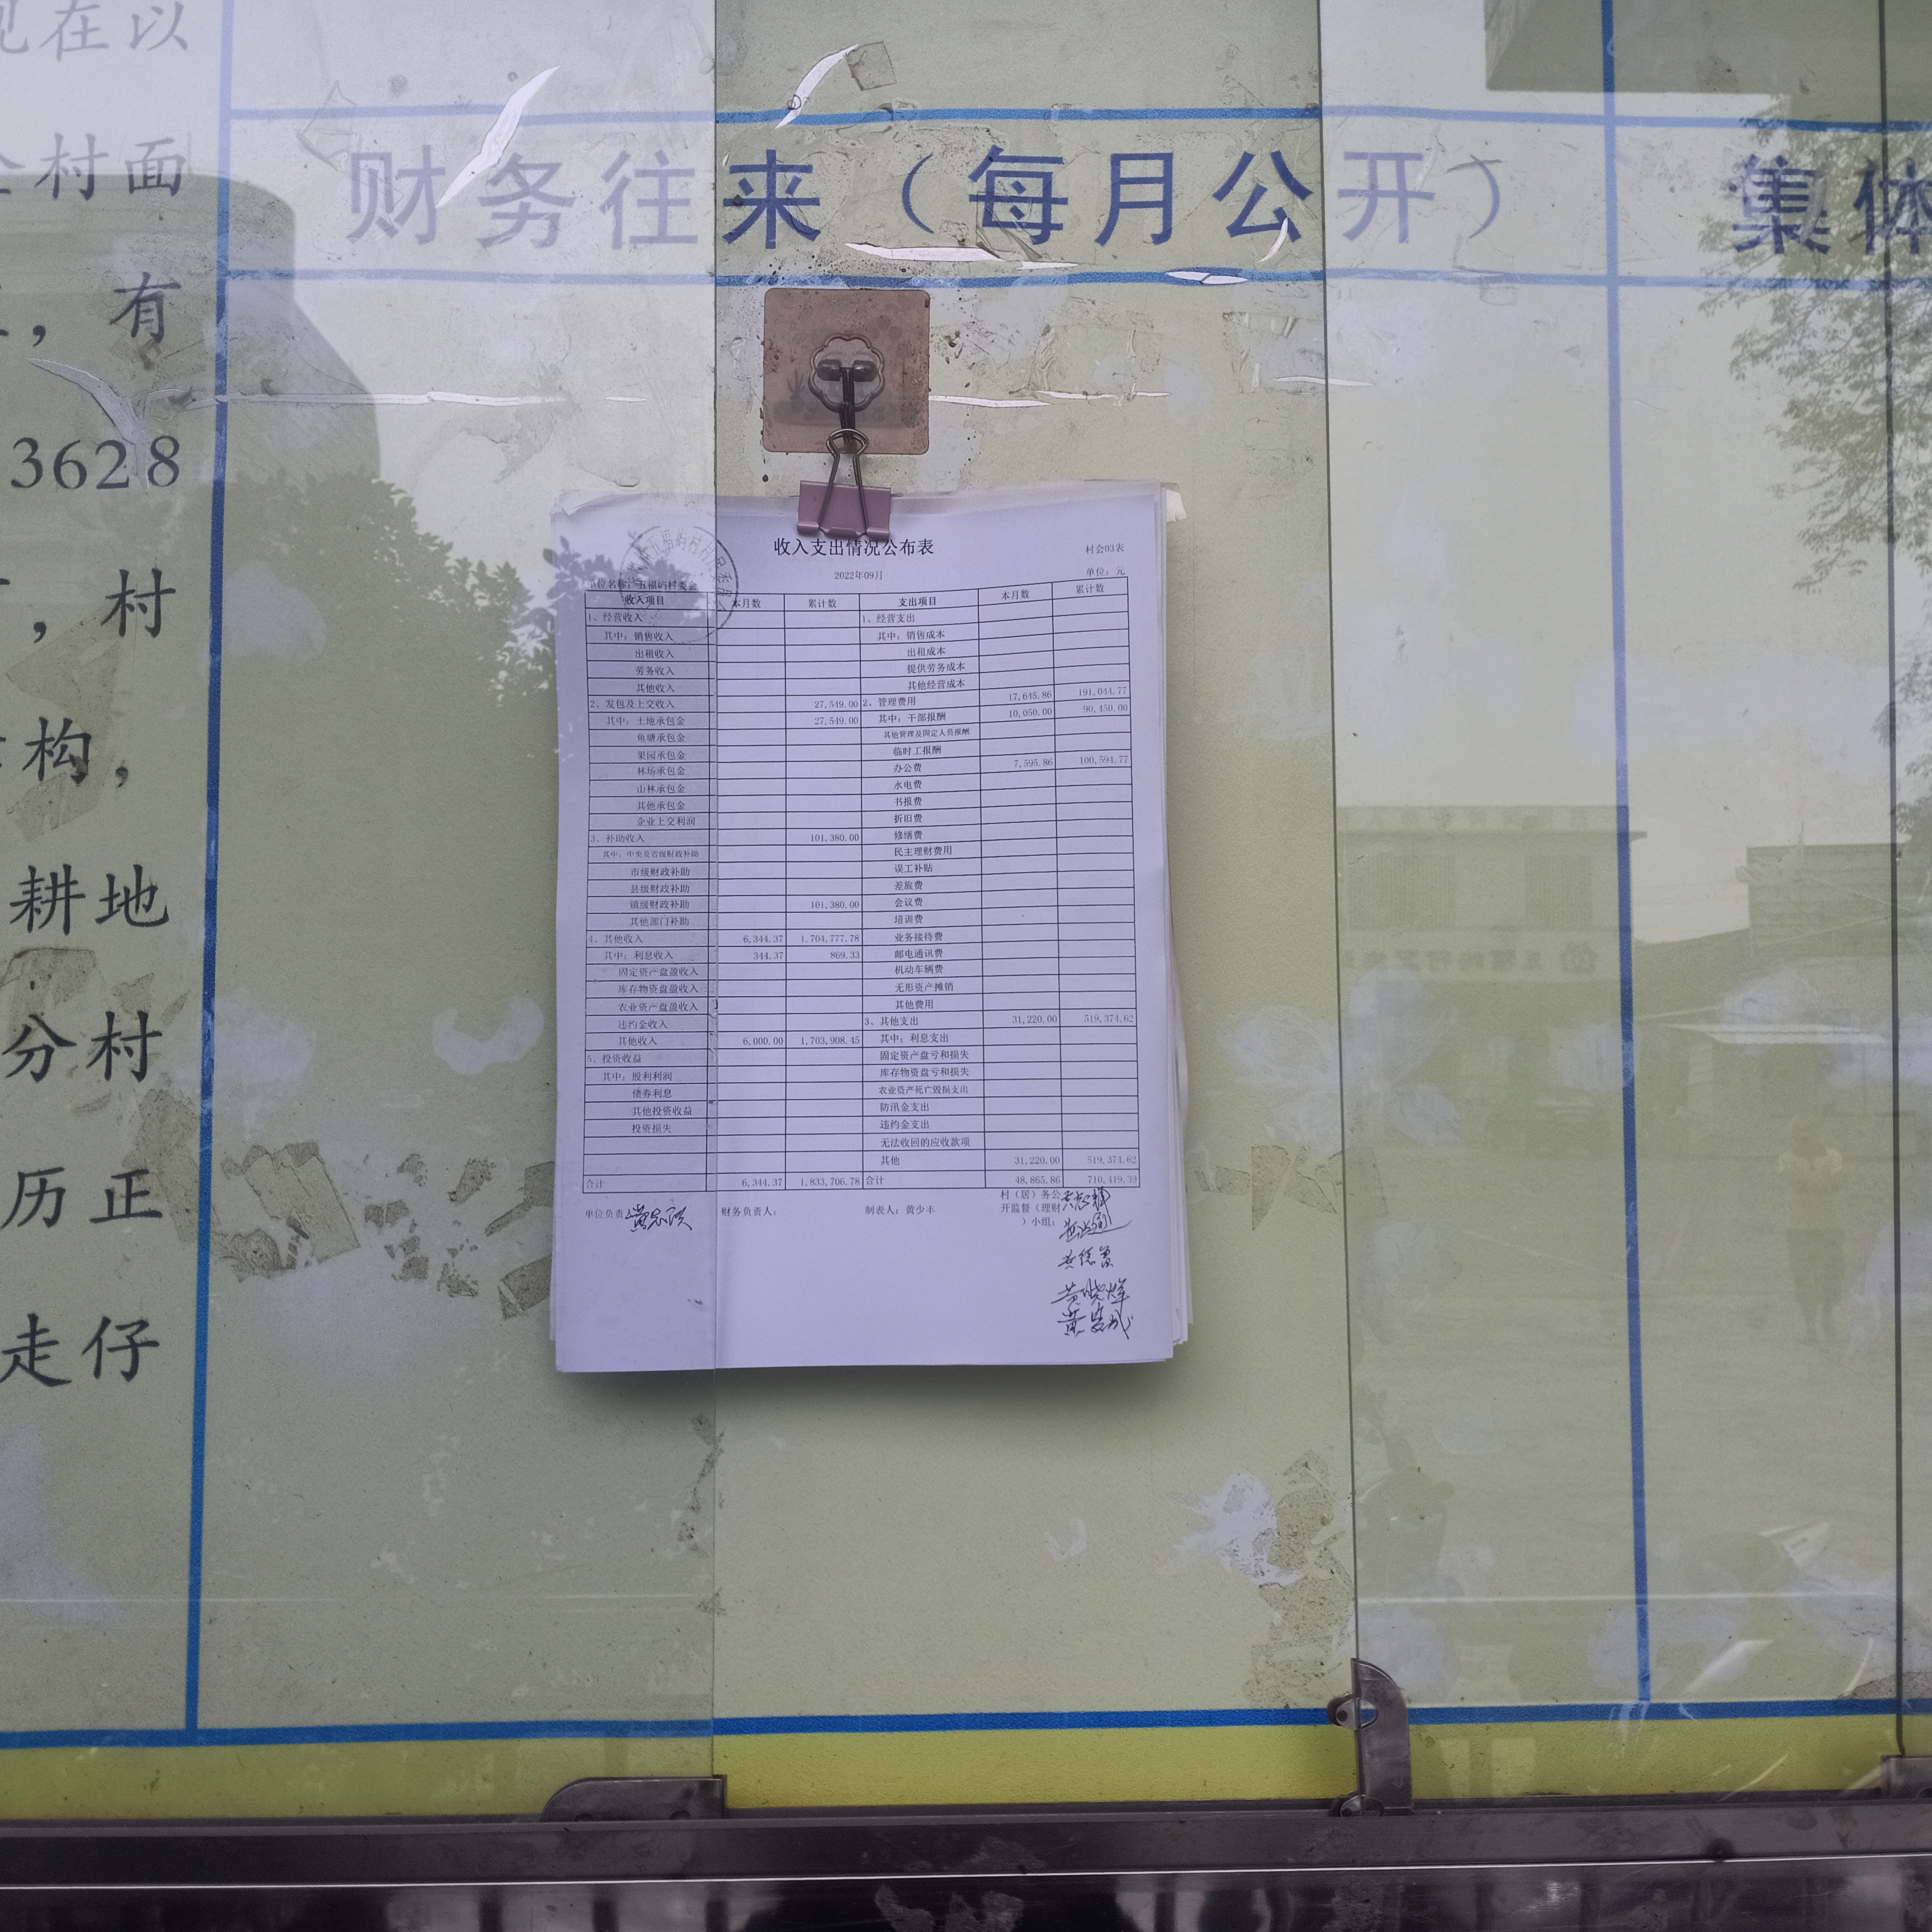 现在以
村面
，有
3628
，村
构，
耕地
分村
历正
走仔
财务往来（每月公开）
集体
收入支出情况公布表
村会03表
2022年09月
单位名称：五福屿村委会 单位：元
收入项目 本月数 累计数 支出项目 本月数 累计数
1、经营收入 1、经营支出
其中：销售收入 其中：销售成本
出租收入 出租成本
劳务收入 提供劳务成本
其他收入 其他经营成本
2、发包及上交收入 27,549.00 2、管理费用 17,645.86 191,044.77
其中：土地承包金 27,549.00 其中：干部报酬 10,050.00 90,450.00
鱼塘承包金 其他管理及固定人员报酬
果园承包金 临时工报酬
林场承包金 办公费 7,595.86 100,594.77
山林承包金 水电费
其他承包金 书报费
企业上交利润 折旧费
3、补助收入 101,380.00 修缮费
其中：中央及省级财政补助 民主理财费用
市级财政补助 误工补贴
县级财政补助 差旅费
镇级财政补助 101,380.00 会议费
其他部门补助 培训费
4、其他收入 6,344.37 1,704,777.78 业务接待费
其中：利息收入 344.37 869.33 邮电通讯费
固定资产盘盈收入 机动车辆费
库存物资盘盈收入 无形资产摊销
农业资产盘盈收入 其他费用
违约金收入 3、其他支出 31,220.00 519,374.62
其他收入 6,000.00 1,703,908.45 其中：利息支出
5、投资收益 固定资产盘亏和损失
其中：股利利润 库存物资盘亏和损失
债券利息 农业资产死亡毁损支出
其他投资收益 防汛金支出
投资损失 违约金支出
无法收回的应收款项
其他 31,220.00 519,374.62
合计 6,344.37 1,833,706.78 合计 48,865.86 710,419.39
单位负责 黄志洪 财务负责人： 制表人：黄少丰 村（居）务公
开监督（理财
）小组：
黄晓烽